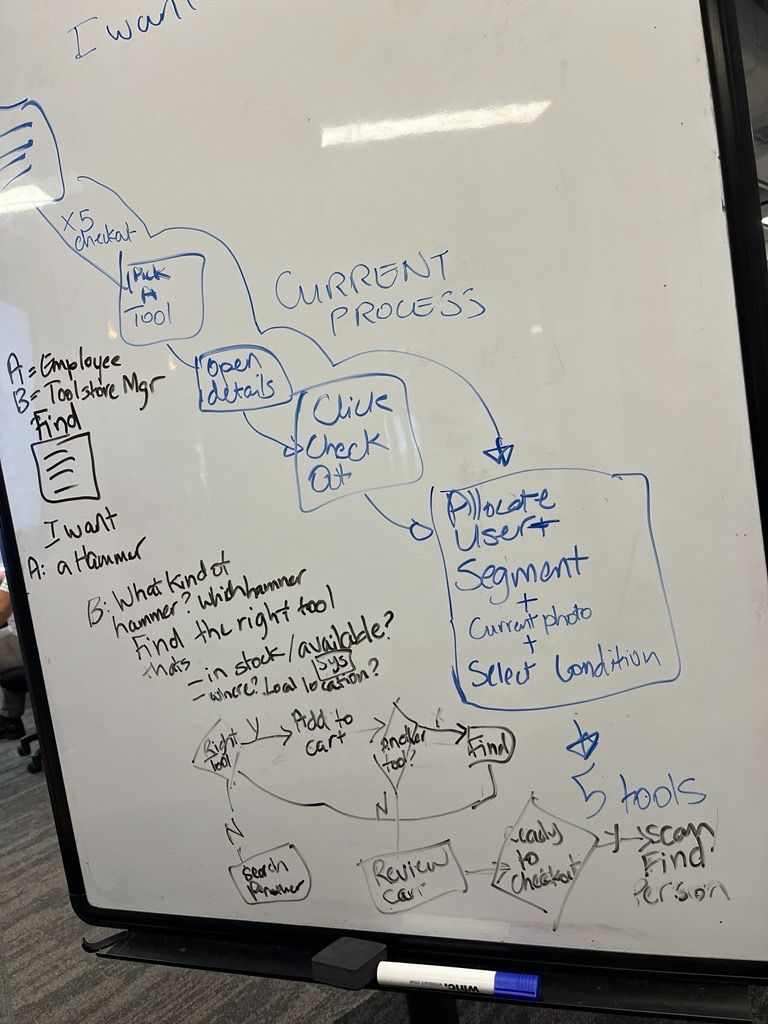 I want
x5
checkout
Pick
A
Tool
CURRENT
PROCESS
Open
details
Click
Check
Out
Allocate
User +
Segment
+
Current photo
+
Select Condition
5 tools
A = Employee
B = Toolstore Mgr
Find
I want
A: a Hammer
B: What kind of
hammer? Which hammer
Find the right tool
thats
= in stock / available?
Sys
= where? Local location?
Right
Tool
Y
Add to
cart
Another
tool?
Y
Find
N
N
Search
Another
Review
Cart
ready
to
checkout
Y
Scan
Find
Person